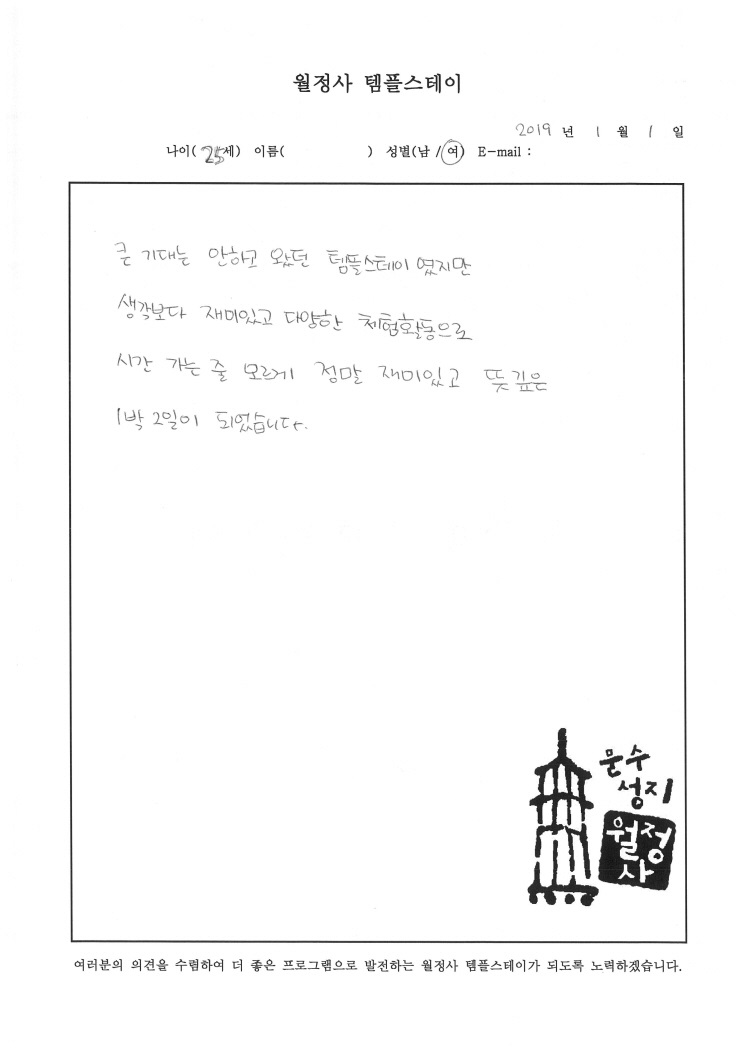 월정사 템플스테이
2019 년 1 월 1 일
나이( 25세) 이름( ) 성별(남 /여) E-mail :
큰 기대는 안하고 왔던 템플스테이였지만
생각보다 재미있고 다양한 체험활동으로
시간 가는 줄 모르게 정말 재미있고 뜻 깊은
1박 2일이 되었습니다.
문수
성지
월정
사
여러분의 의견을 수렴하여 더 좋은 프로그램으로 발전하는 월정사 템플스테이가 되도록 노력하겠습니다.